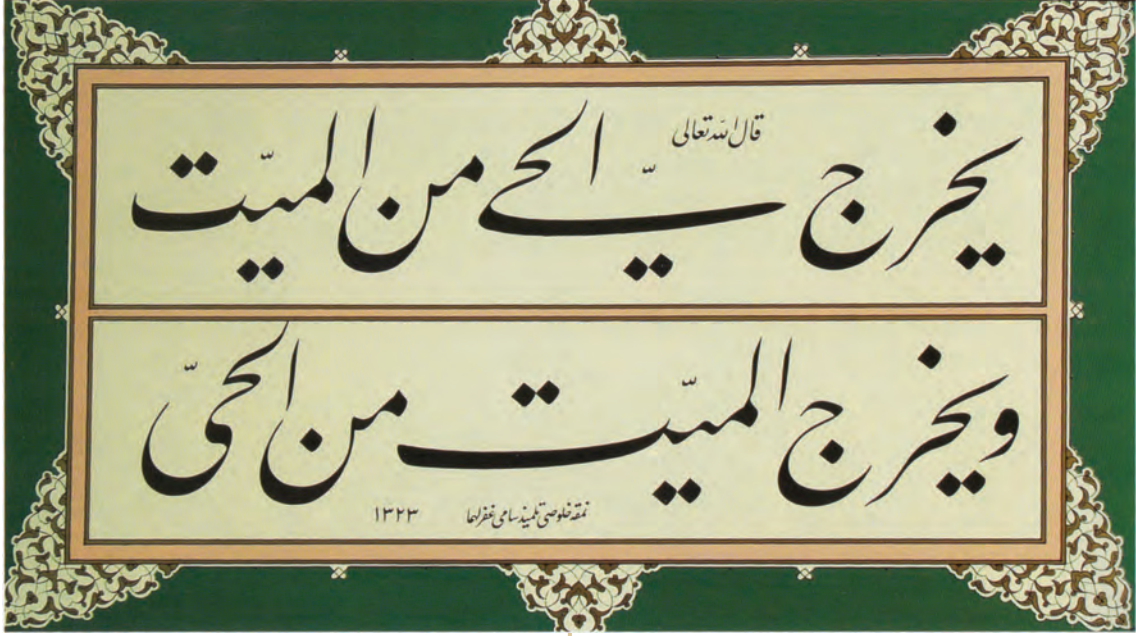 قال الله تعالى
يخرج الحيّ من الميّت
ويخرج الميّت من الحيّ
نمقه خلوصی تلميذ سامی غفر لهما ١٣٢٣